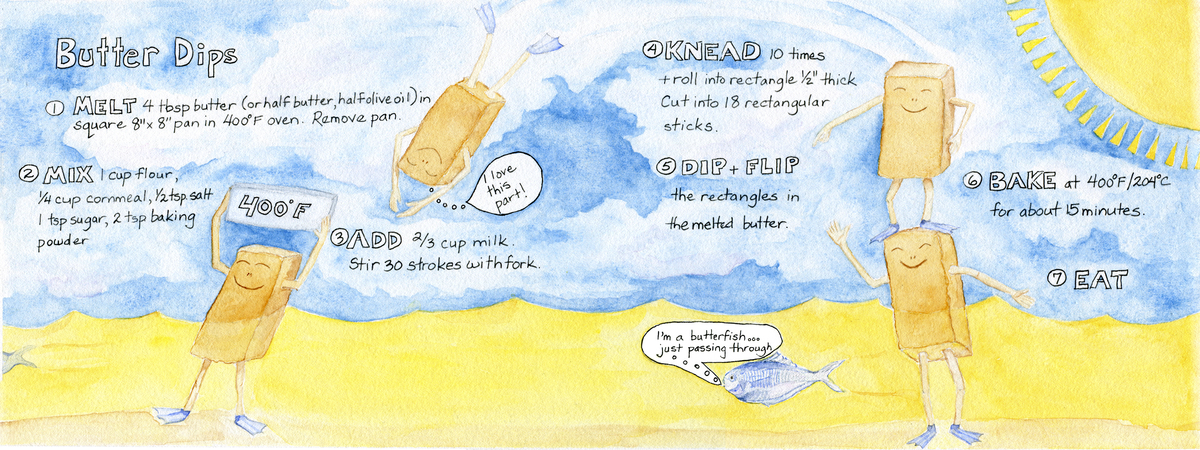 Butter Dips
① MELT 4 tbsp butter (or half butter, half olive oil) in
square 8"x 8" pan in 400°F oven. Remove pan.
② MIX 1 cup flour,
¼ cup cornmeal, ½ tsp. salt
1 tsp sugar, 2 tsp baking
powder
400°F
I love
this
part!
③ ADD 2/3 cup milk.
Stir 30 strokes with fork.
④ KNEAD 10 times
+ roll into rectangle ½" thick
Cut into 18 rectangular
sticks.
⑤ DIP + FLIP
the rectangles in
the melted butter.
I'm a butterfish...
just passing through
⑥ BAKE at 400°F/204°C
for about 15 minutes.
⑦ EAT